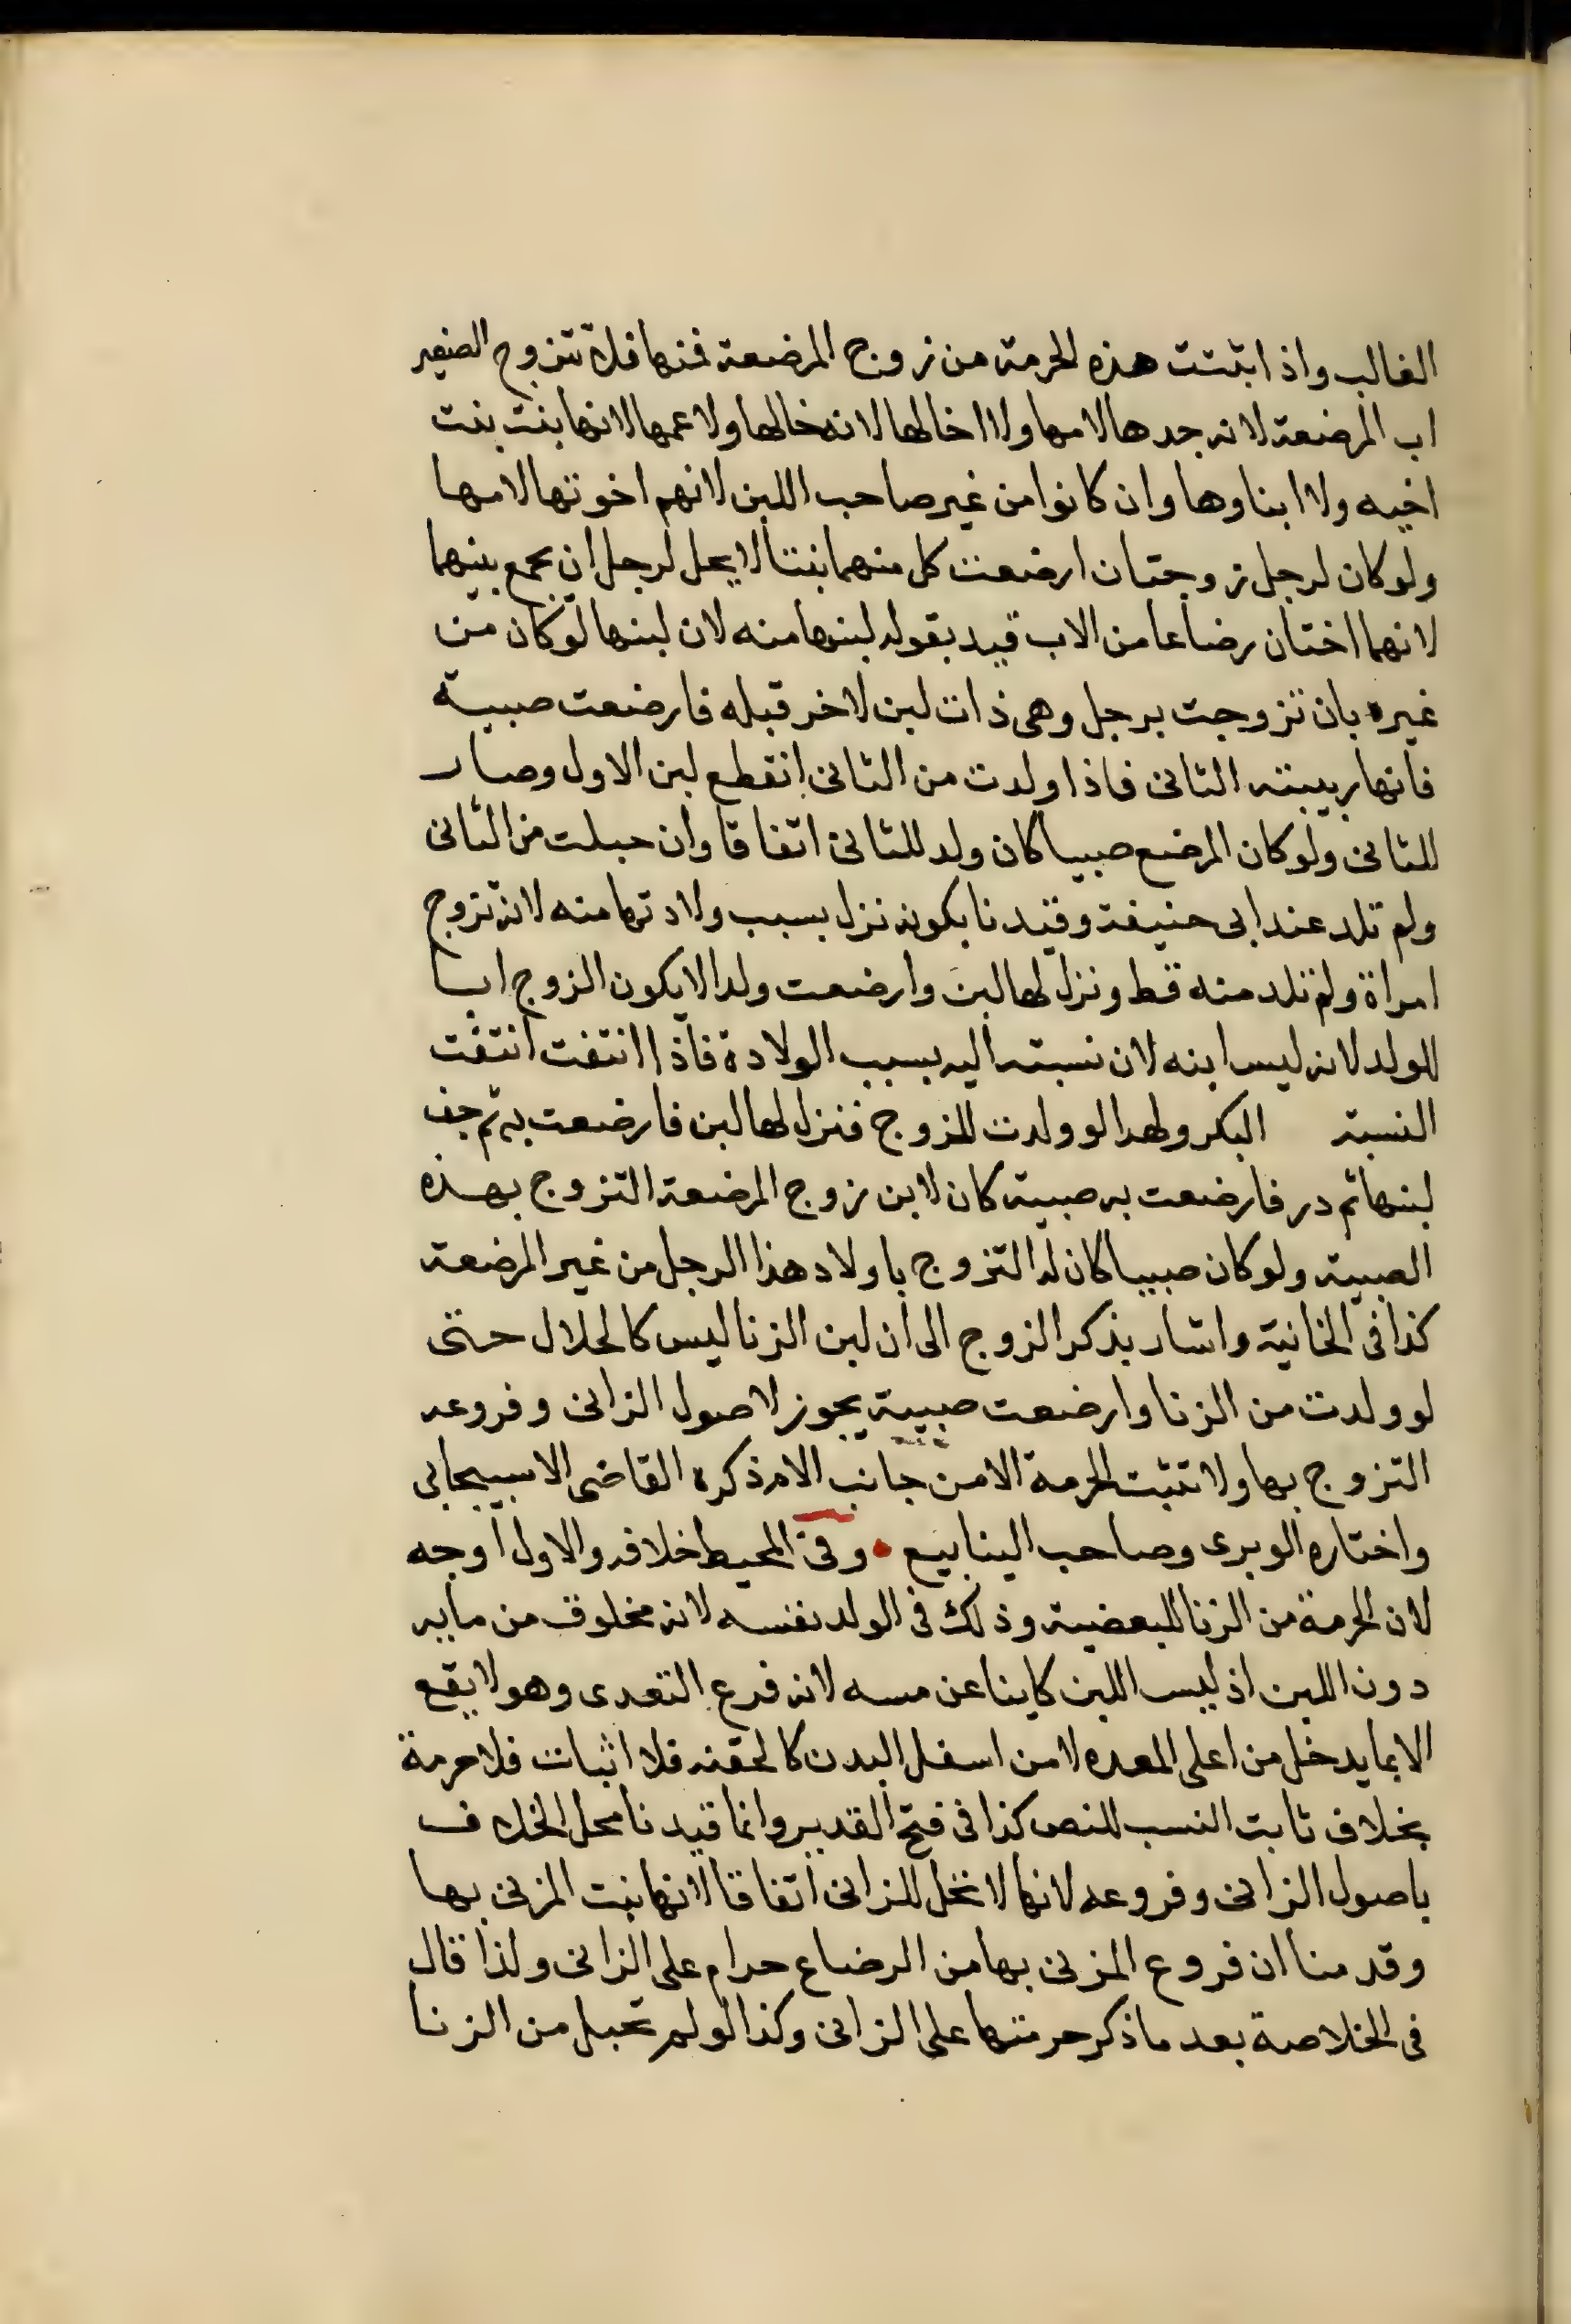 الغالب واذا ثبتت هذه الحرمة من زوج المرضعة فمنها فلا تتزوج الصغير
اب المرضعة لانه جدها لامها ولا اخا لها لانه خالها ولا عمها لانها بنت بنت
اخيه ولا ابناوها وان كانوا من غير صاحب اللبن لانهم اخوتها لامها
ولو كان لرجل زوجتان ارضعت كل منهما بنتا لا يحل لرجل ان يجمع بينهما
لانهما اختان رضاعا من الاب قيد بقوله لبنها منه لان لبنها لو كان من
غيره بان تزوجت برجل وهى ذات لبن لاخر قبله فارضعت صبية
فانها ربيبته الثانى فاذا ولدت من الثانى انقطع لبن الاول وصار
للثانى ولو كان المرضع صبيا كان ولد للثانى اتفاقا وان حبلت من الثانى
ولم تلد عند ابى حنيفة وقيدنا بكونه نزل بسبب ولادتها منه لانه تزوج
امراة ولم تلد منه قط ونزل لها لبن وارضعت ولدا لا يكون الزوج ابا
للولد لانه ليس ابنه لان نسبته اليه بسبب الولادة فاذا انتفت انتفت
النسبة البكر ولهذا لو ولدت للزوج فنزل لها لبن فارضعت به ثم جف
لبنها ثم در فارضعت به صبية كان لابن زوج المرضعة التزوج بهذه
الصبية ولو كان صبيا كان له التزوج باولاد هذا الرجل من غير المرضعة
كذا فى الخانية واشار بذكر الزوج الى ان لبن الزنا ليس كالحلال حتى
لو ولدت من الزنا وارضعت صبية يجوز لاصول الزانى وفروعه
التزوج بها ولا تثبت الحرمة الا من جانب الام ذكره القاضى الاسبيجابى
واختاره الوبرى وصاحب الينابيع • وفى المحيط خلافه والاول اوجه
لان الحرمة من الزنا للبعضية وذلك فى الولد نفسه لانه مخلوق من مايه
دون اللبن اذ ليس اللبن كاينا عن مسه لانه فرع التعدى وهو لا يقع
الا بما يدخل من اعلى المعده لا من اسفل البدن كالحقنه فلا اثبات فلا حرمة
بخلاف ثابت النسب للنص كذا فى فتح القدير وانما قيدنا محل الخلاف
باصول الزانى وفروعه لانها لا تحل للزانى اتفاقا لانها بنت المزنى بها
وقدمنا ان فروع المزنى بها من الرضاع حرام على الزانى ولذا قال
فى الخلاصة بعد ما ذكر حرمتها على الزانى وكذا لو لم تحبل من الزنا